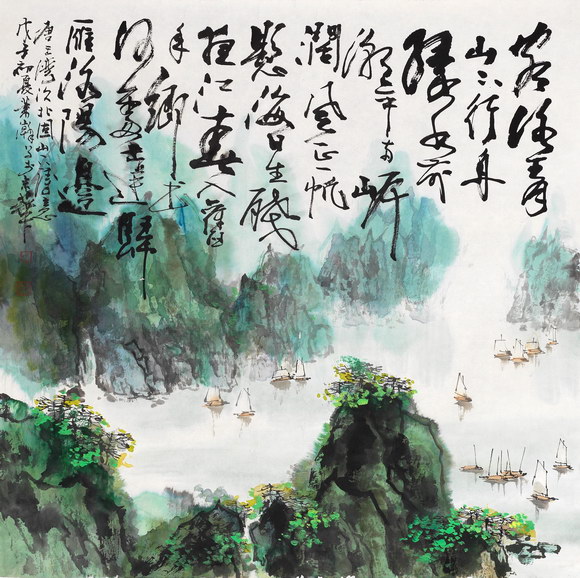 客路青
山下行舟
緑水前
潮平兩岸
闊風正一帆
懸海日生殘
夜江春入舊
年鄉書
何處達歸
雁洛陽邊
唐王灣次北固山下詩意